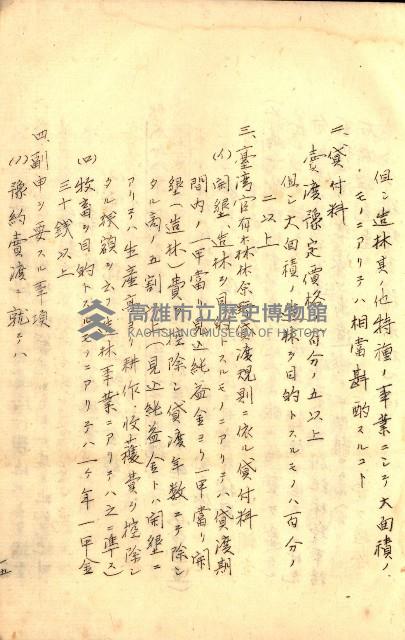 但シ造林其ノ他特種ノ事業ニシテ大面積ノ
モノニアリテハ相當斟酌スルコト
二、貸付料
賣渡豫定價格ノ百分ノ五以上
但シ大面積ノ造林ヲ目的トスルモノハ百分ノ
二以上
三、臺灣官有森林原野貸渡規則ニ依ル貸付料
(イ)開墾(造林)ヲ目的トスルモノニアリテハ貸渡期
間内ノ一甲當リ見込純益金ヨリ一甲當リ開
墾(造林)費ヲ控除シ貸渡年數ニテ除シ
タル高ノ五割(見込純益金トハ開墾ニ
アリテハ生產高ヨリ耕作、收穫費ヲ控除シ
タル殘額ヲ云フ造林事業ニアリテハ之ニ準ス)
(ロ)牧畜ヲ目的トスルモノニアリテハ一ケ年一甲金
三十錢以上
四、副申ヲ要スル事項
(イ)豫約賣渡ニ就テハ
一五
高雄市立歷史博物館
KAOHSIUNG MUSEUM OF HISTORY